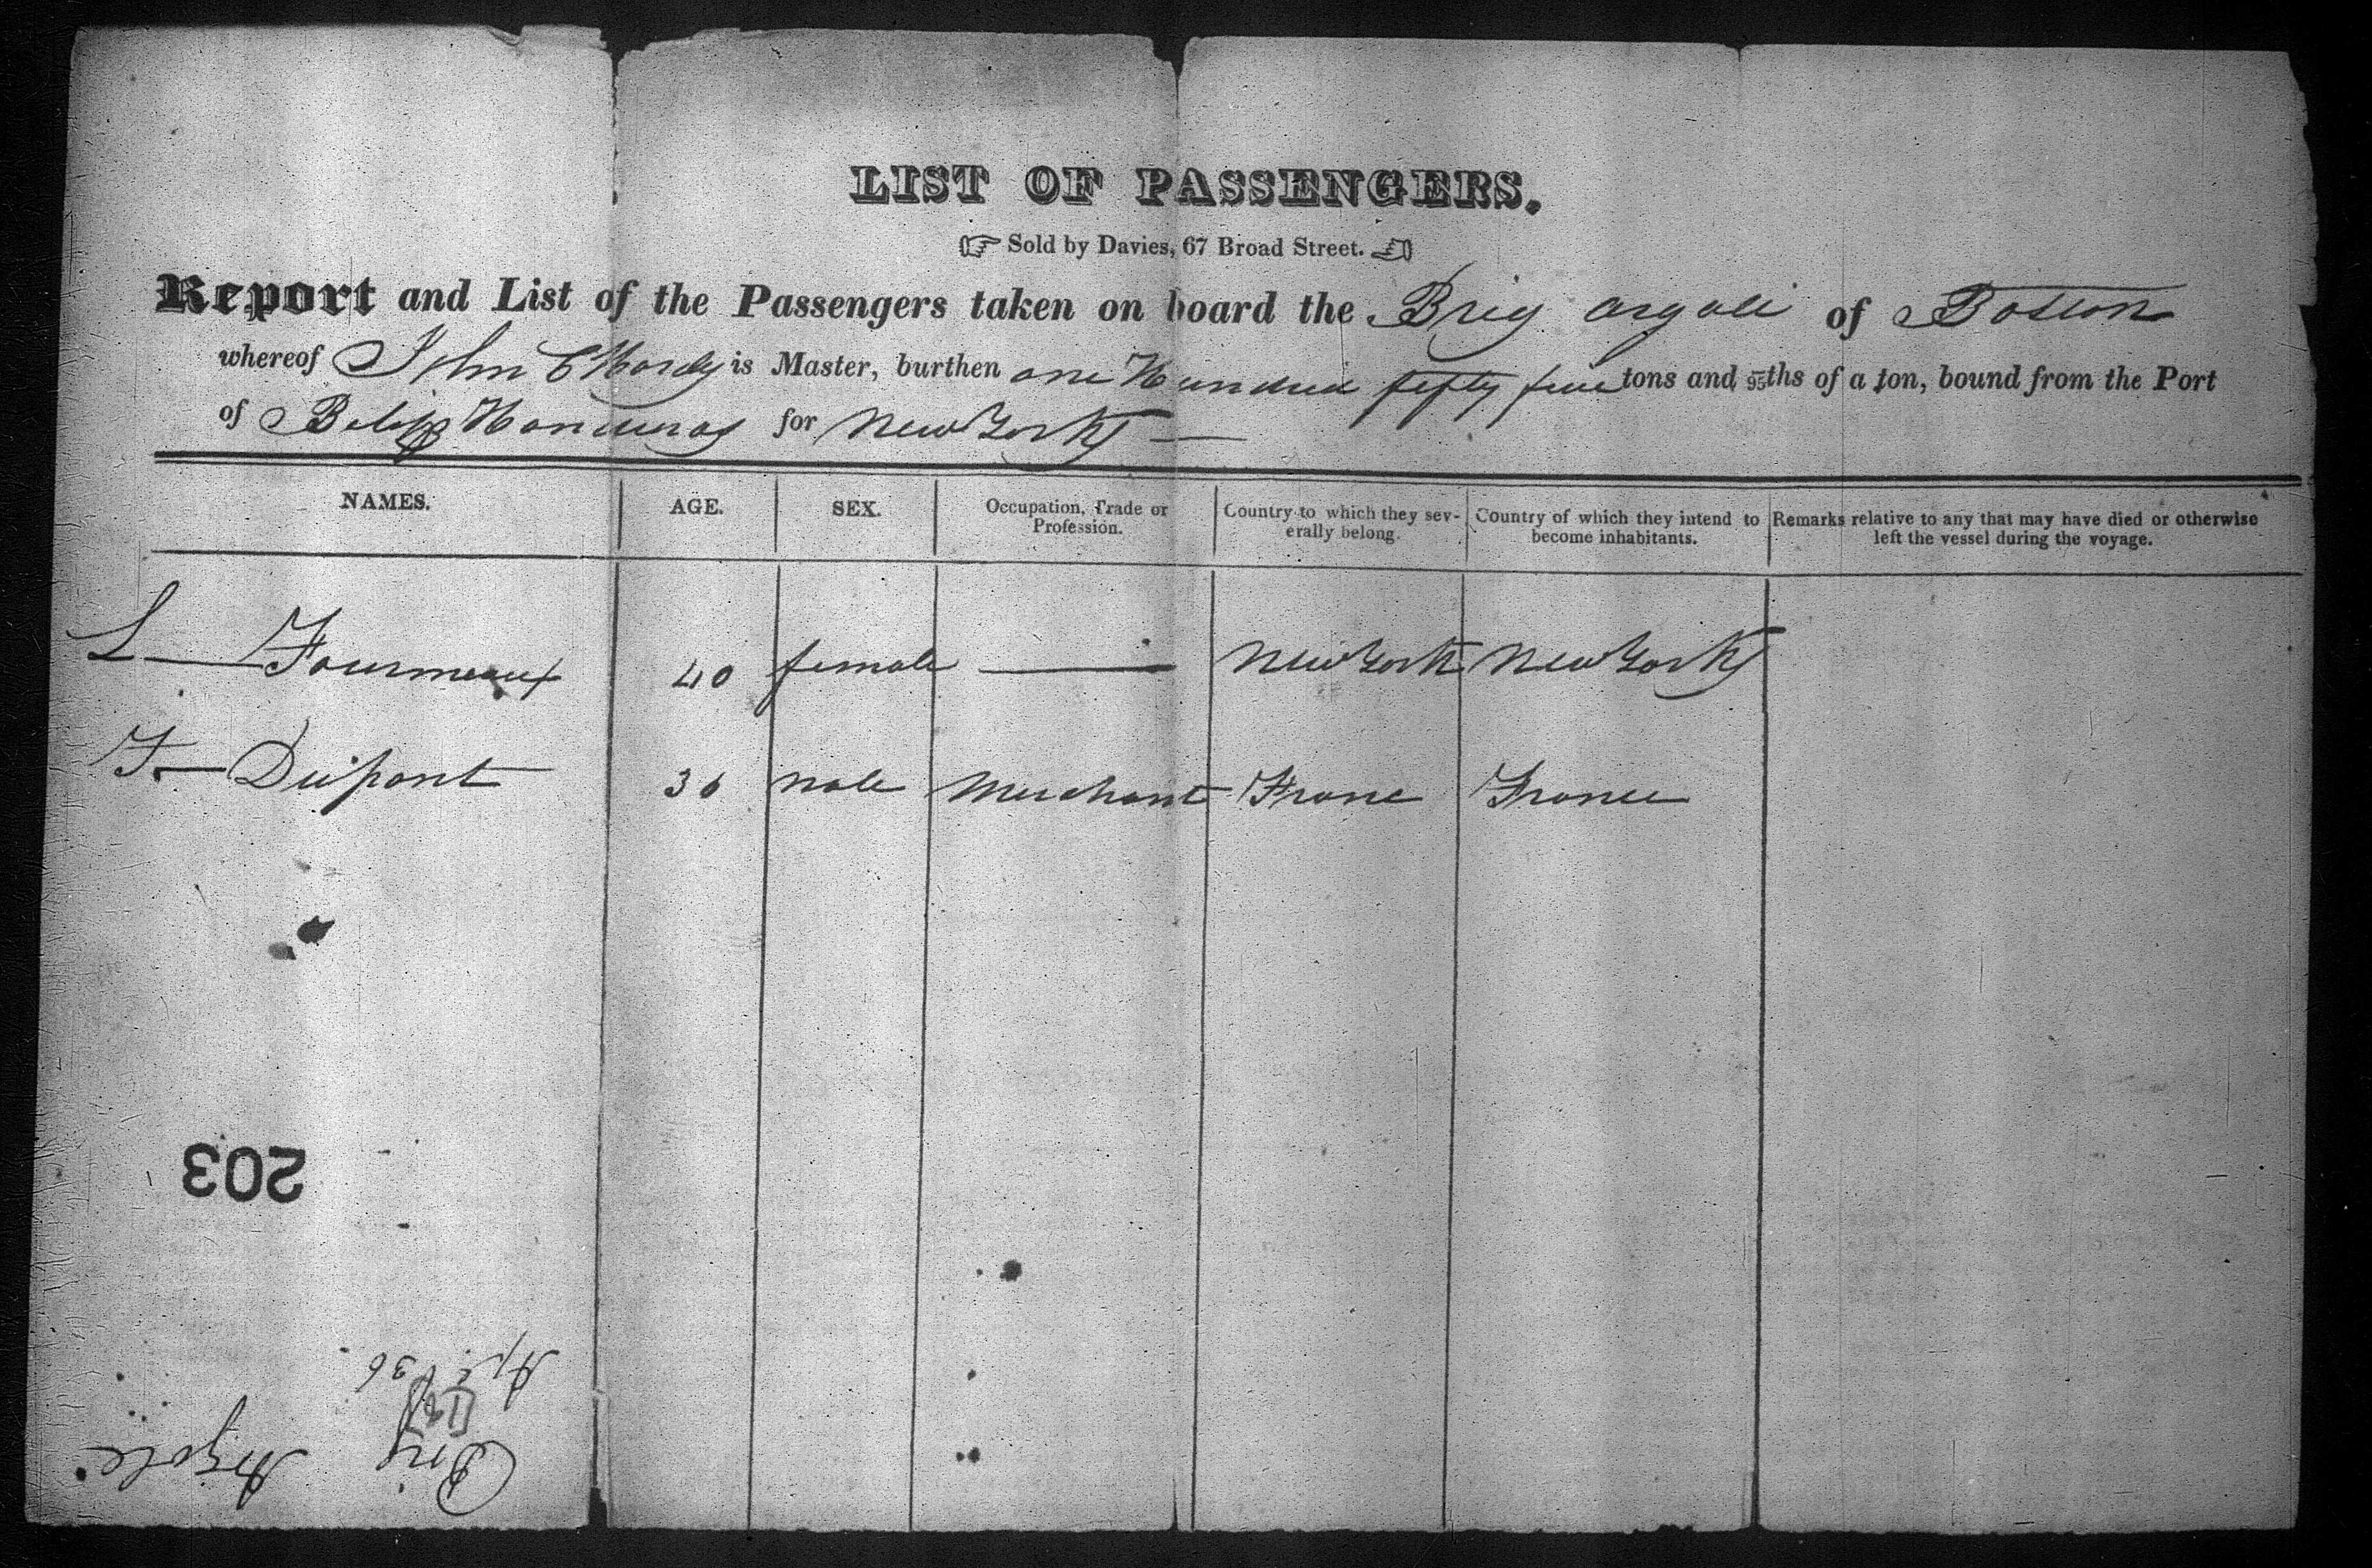 LIST OF PASSENGERS.
Sold by Davies, 67 Broad Street.
Report and List of the Passengers taken on board the Brig Argali of Boston
whereof John C Hardy is Master, burthen one Hundred fifty five tons and 95ths of a ton, bound from the Port
of Honduras for New York
NAMES. AGE. SEX. Occupation, Trade or Profession. Country to which they severally belong. Country of which they intend to become inhabitants. Remarks relative to any that may have died or otherwise left the vessel during the voyage.
L Fourneaux 40 female New York New York
F Dupont 36 male Merchant Franc France
203
Brig Argali